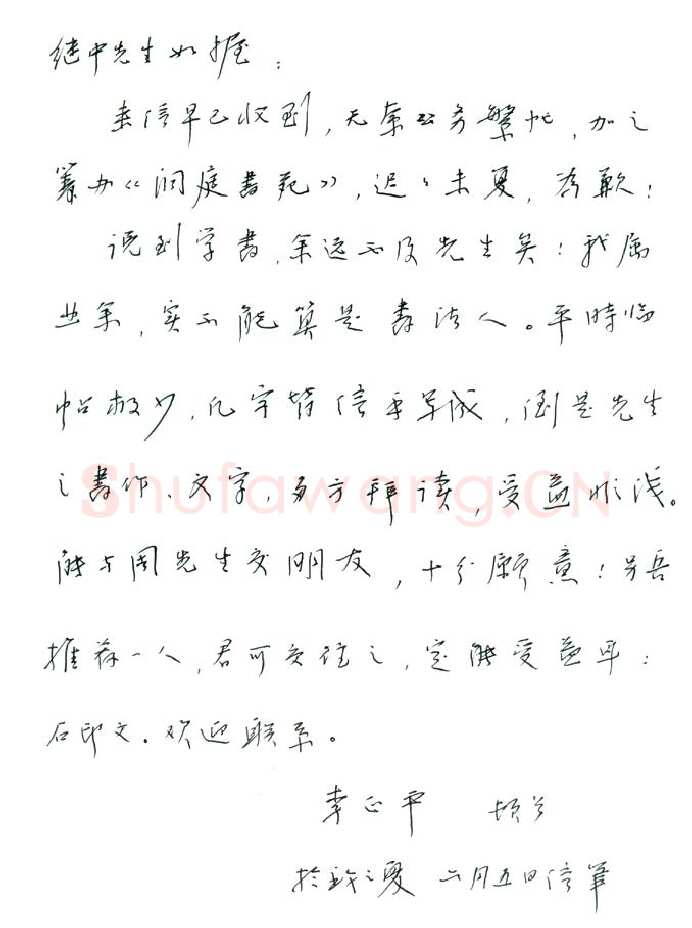 继中先生如握：
来信早已收到，无奈公务繁忙，加之
筹办《洞庭书苑》，迟迟未复，为歉！
说到学书，余远不及先生矣！我属
业余，实不能算是书法人。平時临
帖极少，凡字皆信手草成，倒是先生
之書作、文字，多方拜读，受益非浅。
能与周先生交朋友，十分願意！另
推荐一人，君可交往之，定能受益耳：
石印文。欢迎联系。
李正平 顿首
於 之夏 六月五日信筆
Shufawang.CN